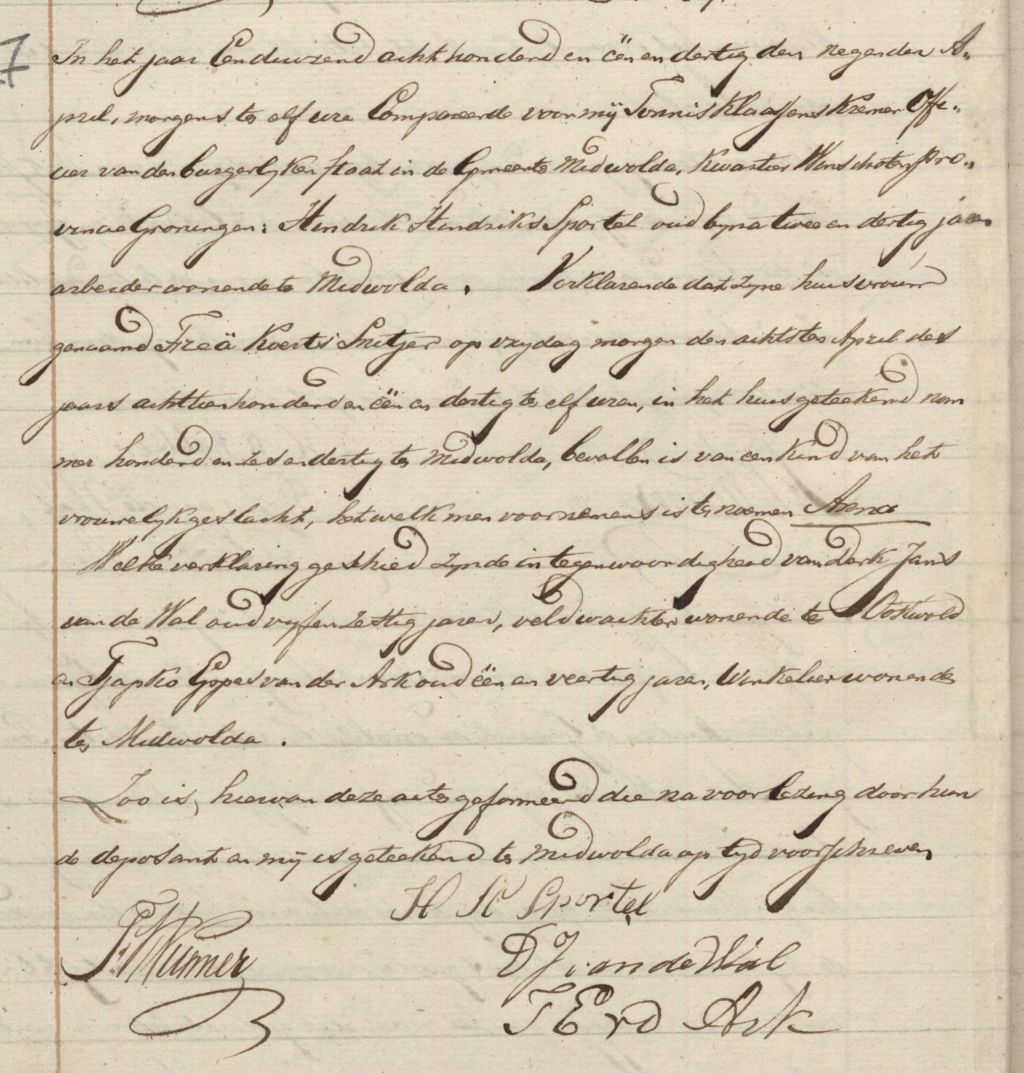 7
In het jaar Eenduizend acht honderd en één en dertig den negenden A„
pril, morgens te elf ure Compareerde voor mij Tonnis Klaassens Kremer Offi„
cier van den burgerlyken staat in de Gemeente Midwolda, Kwartier Winschoten, Pro„
vincie Groningen: Hindrik Hindriks Sportel oud byna twee en dertig jaar
arbeider wonende te Midwolda. Verklarende dat zyne huisvrouw
genaamd Freä Koerts Snitjer op vrydag morgen den achtsten April des
jaars achttienhonderd en één en dertig te elf uren, in het huis geteekend nom
mer honderd en zes en dertig te Midwolda, bevallen is van een kind van het
vrouwelyk geslacht, hetwelk men voornemens is te noemen Arena
Welke verklaring geschied zynde in tegenwoordigheid van Derk Jans
van de Wal oud vyf en zestig jaren, veldwachter wonende te Oostwold
en Tjapko Eppes van der Ark oud één en veertig jaren, Winkelier wonende
te Midwolda.
Zoo is, hiervan deze acte geformeerd die na voorlezing door hun
de deposant en mij is geteekend te Midwolda op tyd voorschreven
H H Sportel
D J van de Wal
T E v d Ark